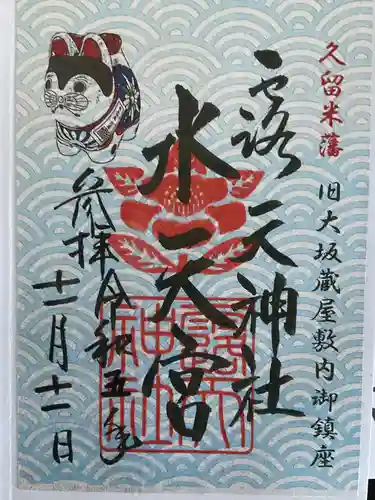 久留米藩 旧大坂蔵屋敷内御鎮座
露天神社
水天宮
参拝 令和五年
十一月十一日
露天神社